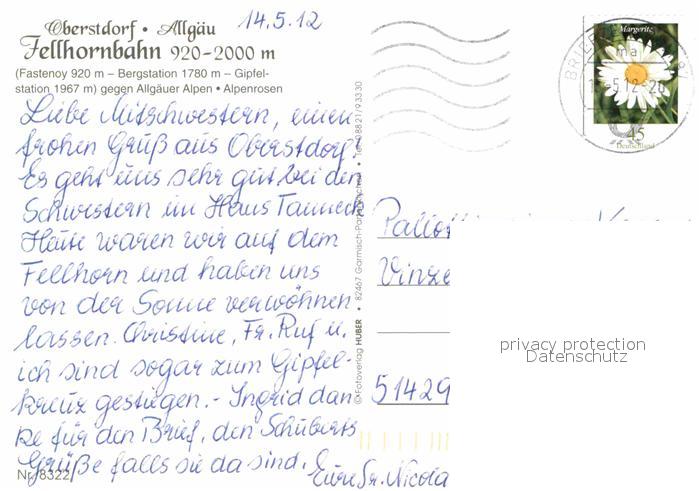 Oberstdorf • Allgäu
14.5.12
Fellhornbahn 920-2000 m
(Fastenoy 920 m – Bergstation 1780 m – Gipfel-
station 1967 m) gegen Allgäuer Alpen • Alpenrosen
Liebe Mitschwestern, einen
frohen Gruß aus Oberstdorf.
Es geht uns sehr gut bei den
Schwestern im Haus Tanneck
Heute waren wir auf dem
Fellhorn und haben uns
von der Sonne verwöhnen
lassen. Christine, Fr. Ruf u.
ich sind sogar zum Gipfel-
kreuz gestiegen. - Ingrid dan
ke für den Brief, den Schuberts
Grüße falls sie da sind.
Eure Sr. Nicola
Nr. 8322
© Fotoverlag HUBER • 82467 Garmisch-Partenkirchen • Tel. 08821/93330
Margerite
45
Deutschland
BRIEF
Vinze
51429
privacy protection
Datenschutz